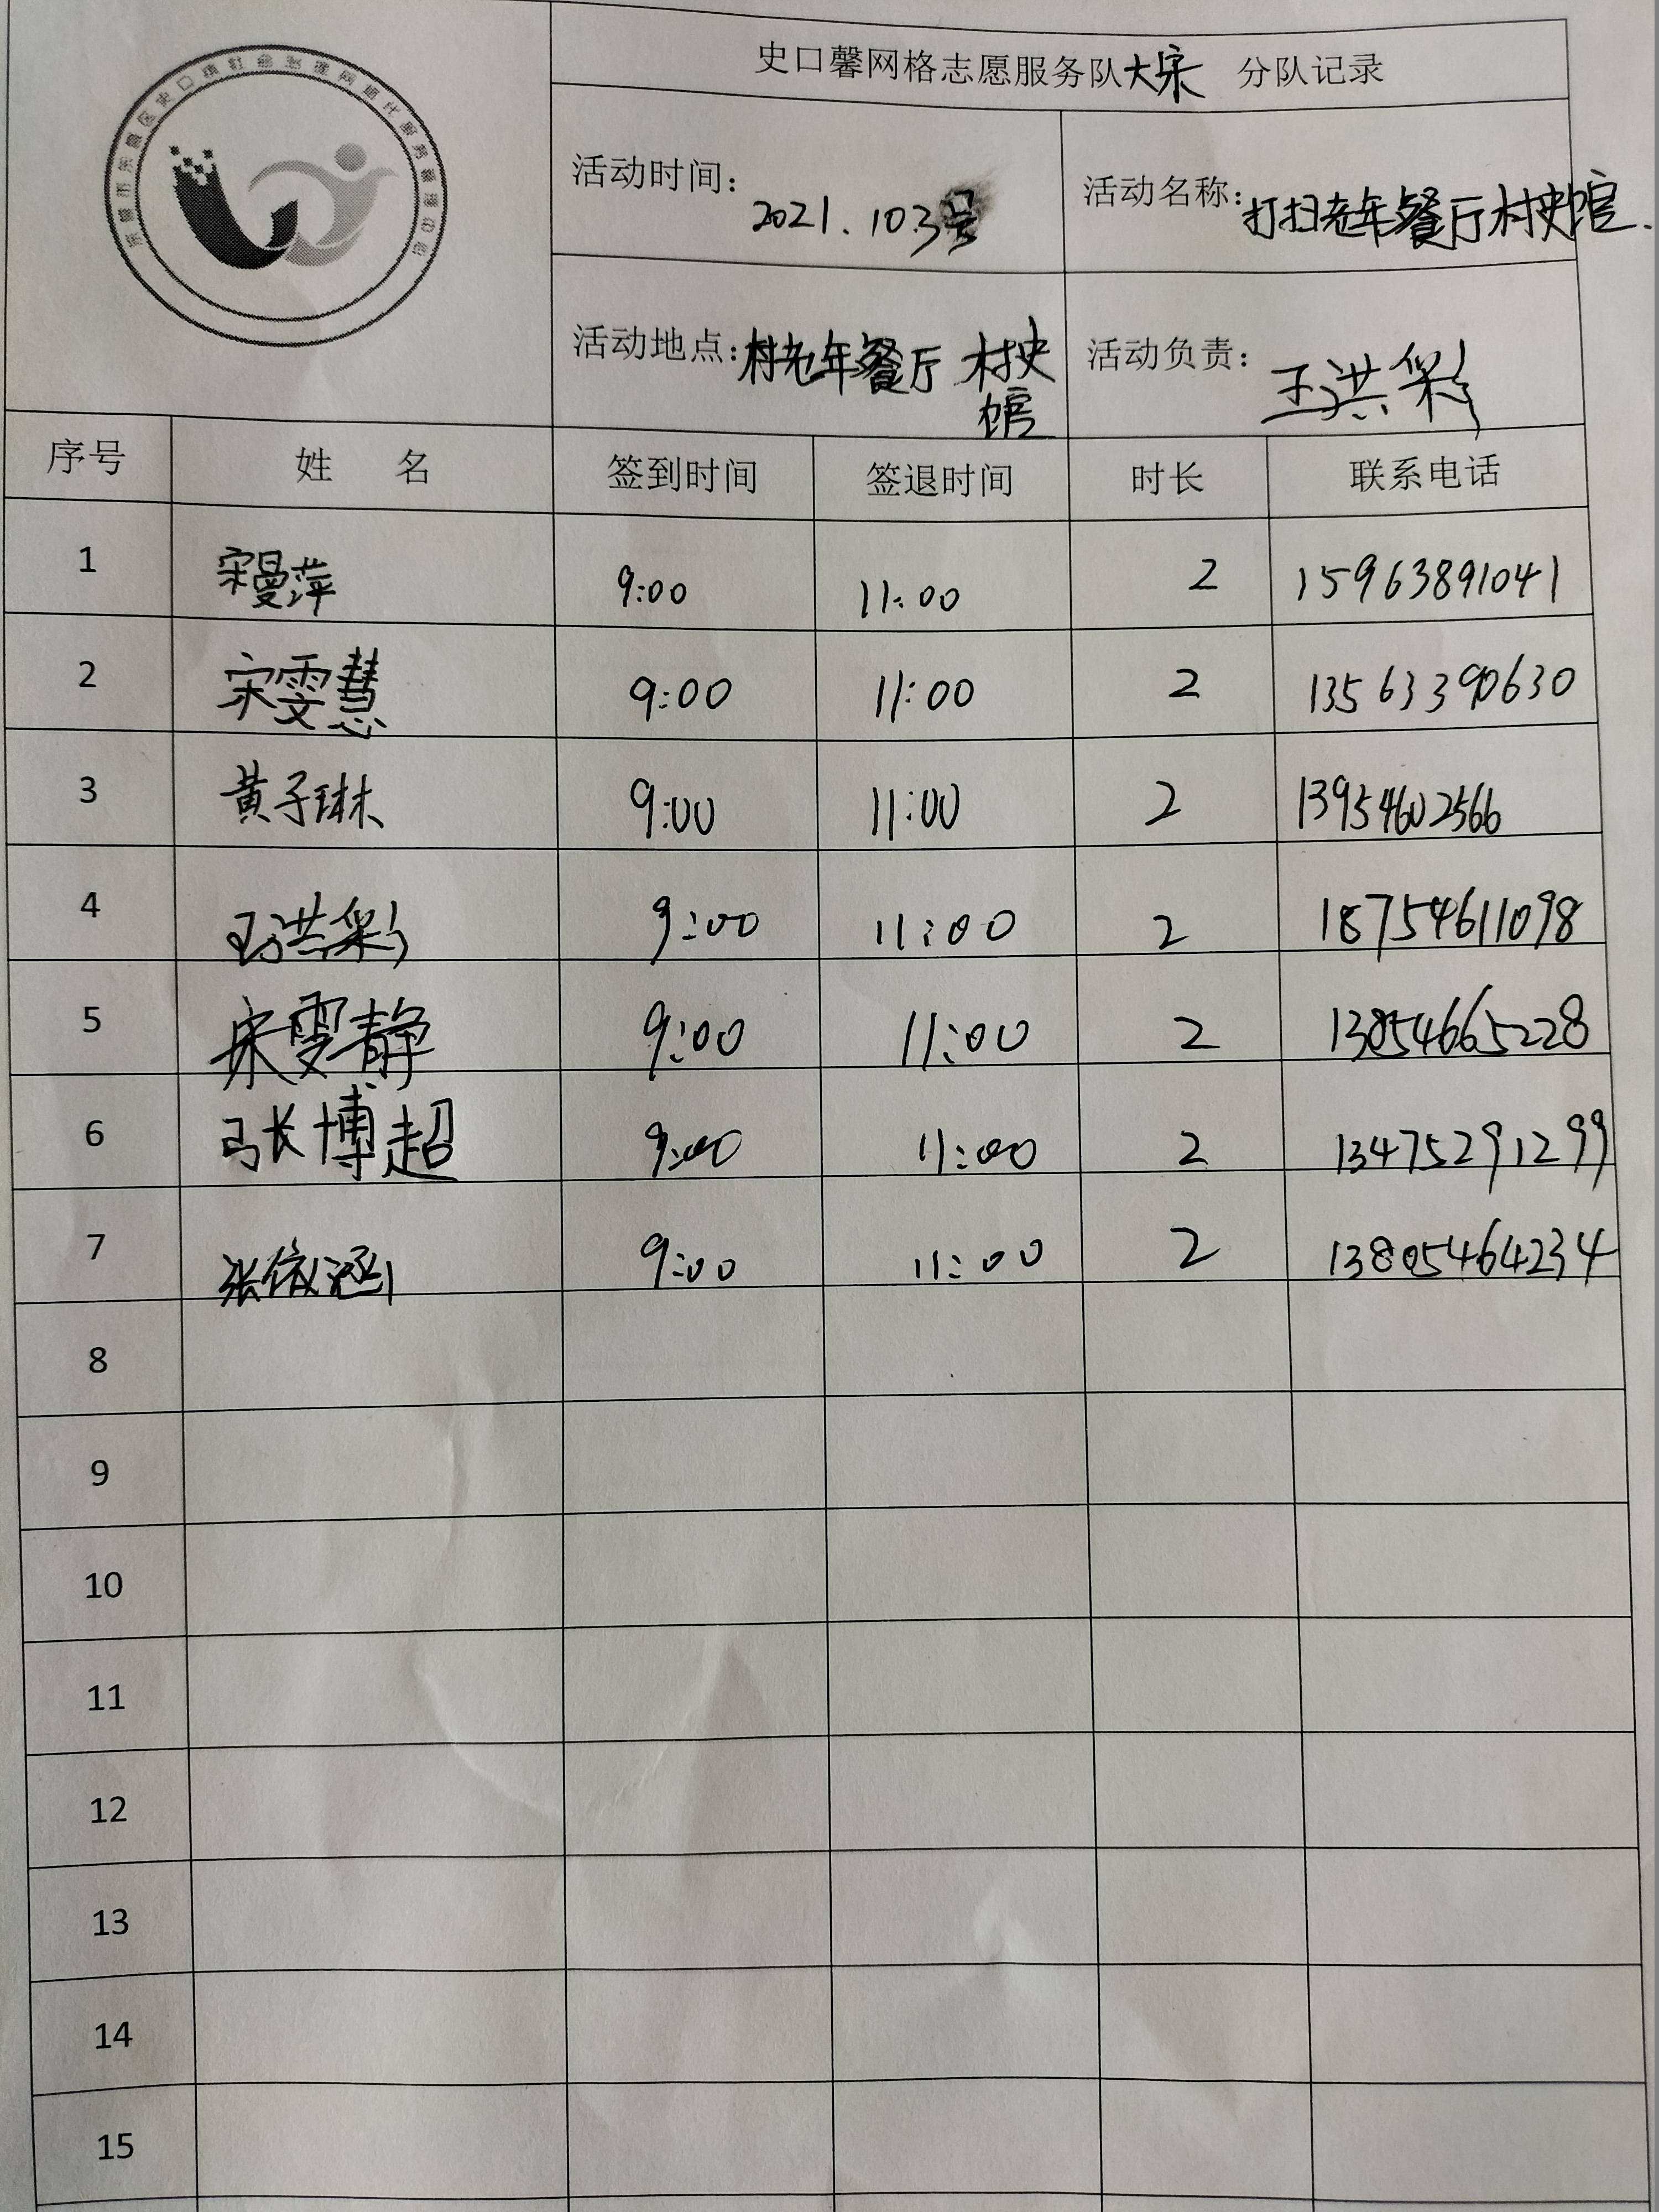 史口馨网格志愿服务队大宋 分队记录
活动时间：2021.10.3号
活动名称：打扫老年餐厅村史馆.
活动地点：村老年餐厅 村史
馆
活动负责：王洪彩
序号 姓 名 签到时间 签退时间 时长 联系电话
1 宋曼萍 9:00 11:00 2 15963891041
2 宋雯慧 9:00 11:00 2 13563390630
3 黄子琳 9:00 11:00 2 13954602566
4 王洪彩 9:00 11:00 2 18754611098
5 宋雯静 9:00 11:00 2 13854665228
6 张博超 9:00 11:00 2 13475291299
7 张依涵 9:00 11:00 2 13805464234
8
9
10
11
12
13
14
15